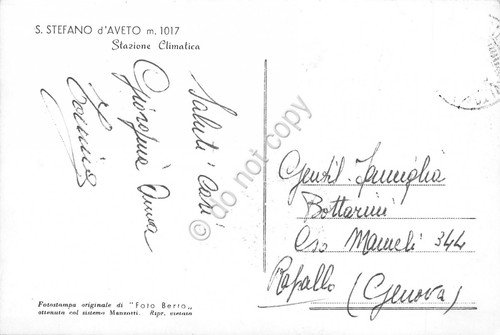 S. STEFANO d'AVETO m. 1017
Stazione Climatica
Saluti cari
Giorgina Anna
Gentil. Famiglia
Bottarini
Cso Mameli 344
Rapallo (Genova)
Fotostampa originale di "Foto Berro„
ottenuta col sistema Manzotti. Ripr. vietata
© do not copy